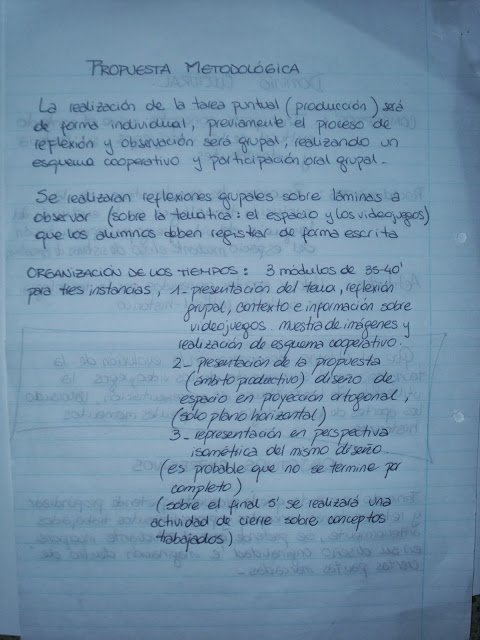 PROPUESTA METODOLÓGICA
La realización de la tarea puntual (producción) será
de forma individual, previamente el proceso de
reflexión y observación será grupal, realizando un
esquema cooperativo y participación oral grupal.
Se realizaran reflexiones grupales sobre láminas a
observar (sobre la temática: el espacio y los videojuegos)
que los alumnos deben registrar de forma escrita
ORGANIZACIÓN DE LOS TIEMPOS: 3 módulos de 35-40'
para tres instancias, 1- presentación del tema, reflexión
grupal, contexto e información sobre
videojuegos. muestra de imágenes y
realización de esquema cooperativo.
2- presentación de la propuesta
(ámbito productivo) diseño de
espacio en proyección ortogonal,
(sólo plano horizontal)
3- representación en perspectiva
isométrica del mismo diseño.
(es probable que no se termine por
completo)
(sobre el final 5' se realizará una
actividad de cierre sobre conceptos
trabajados)